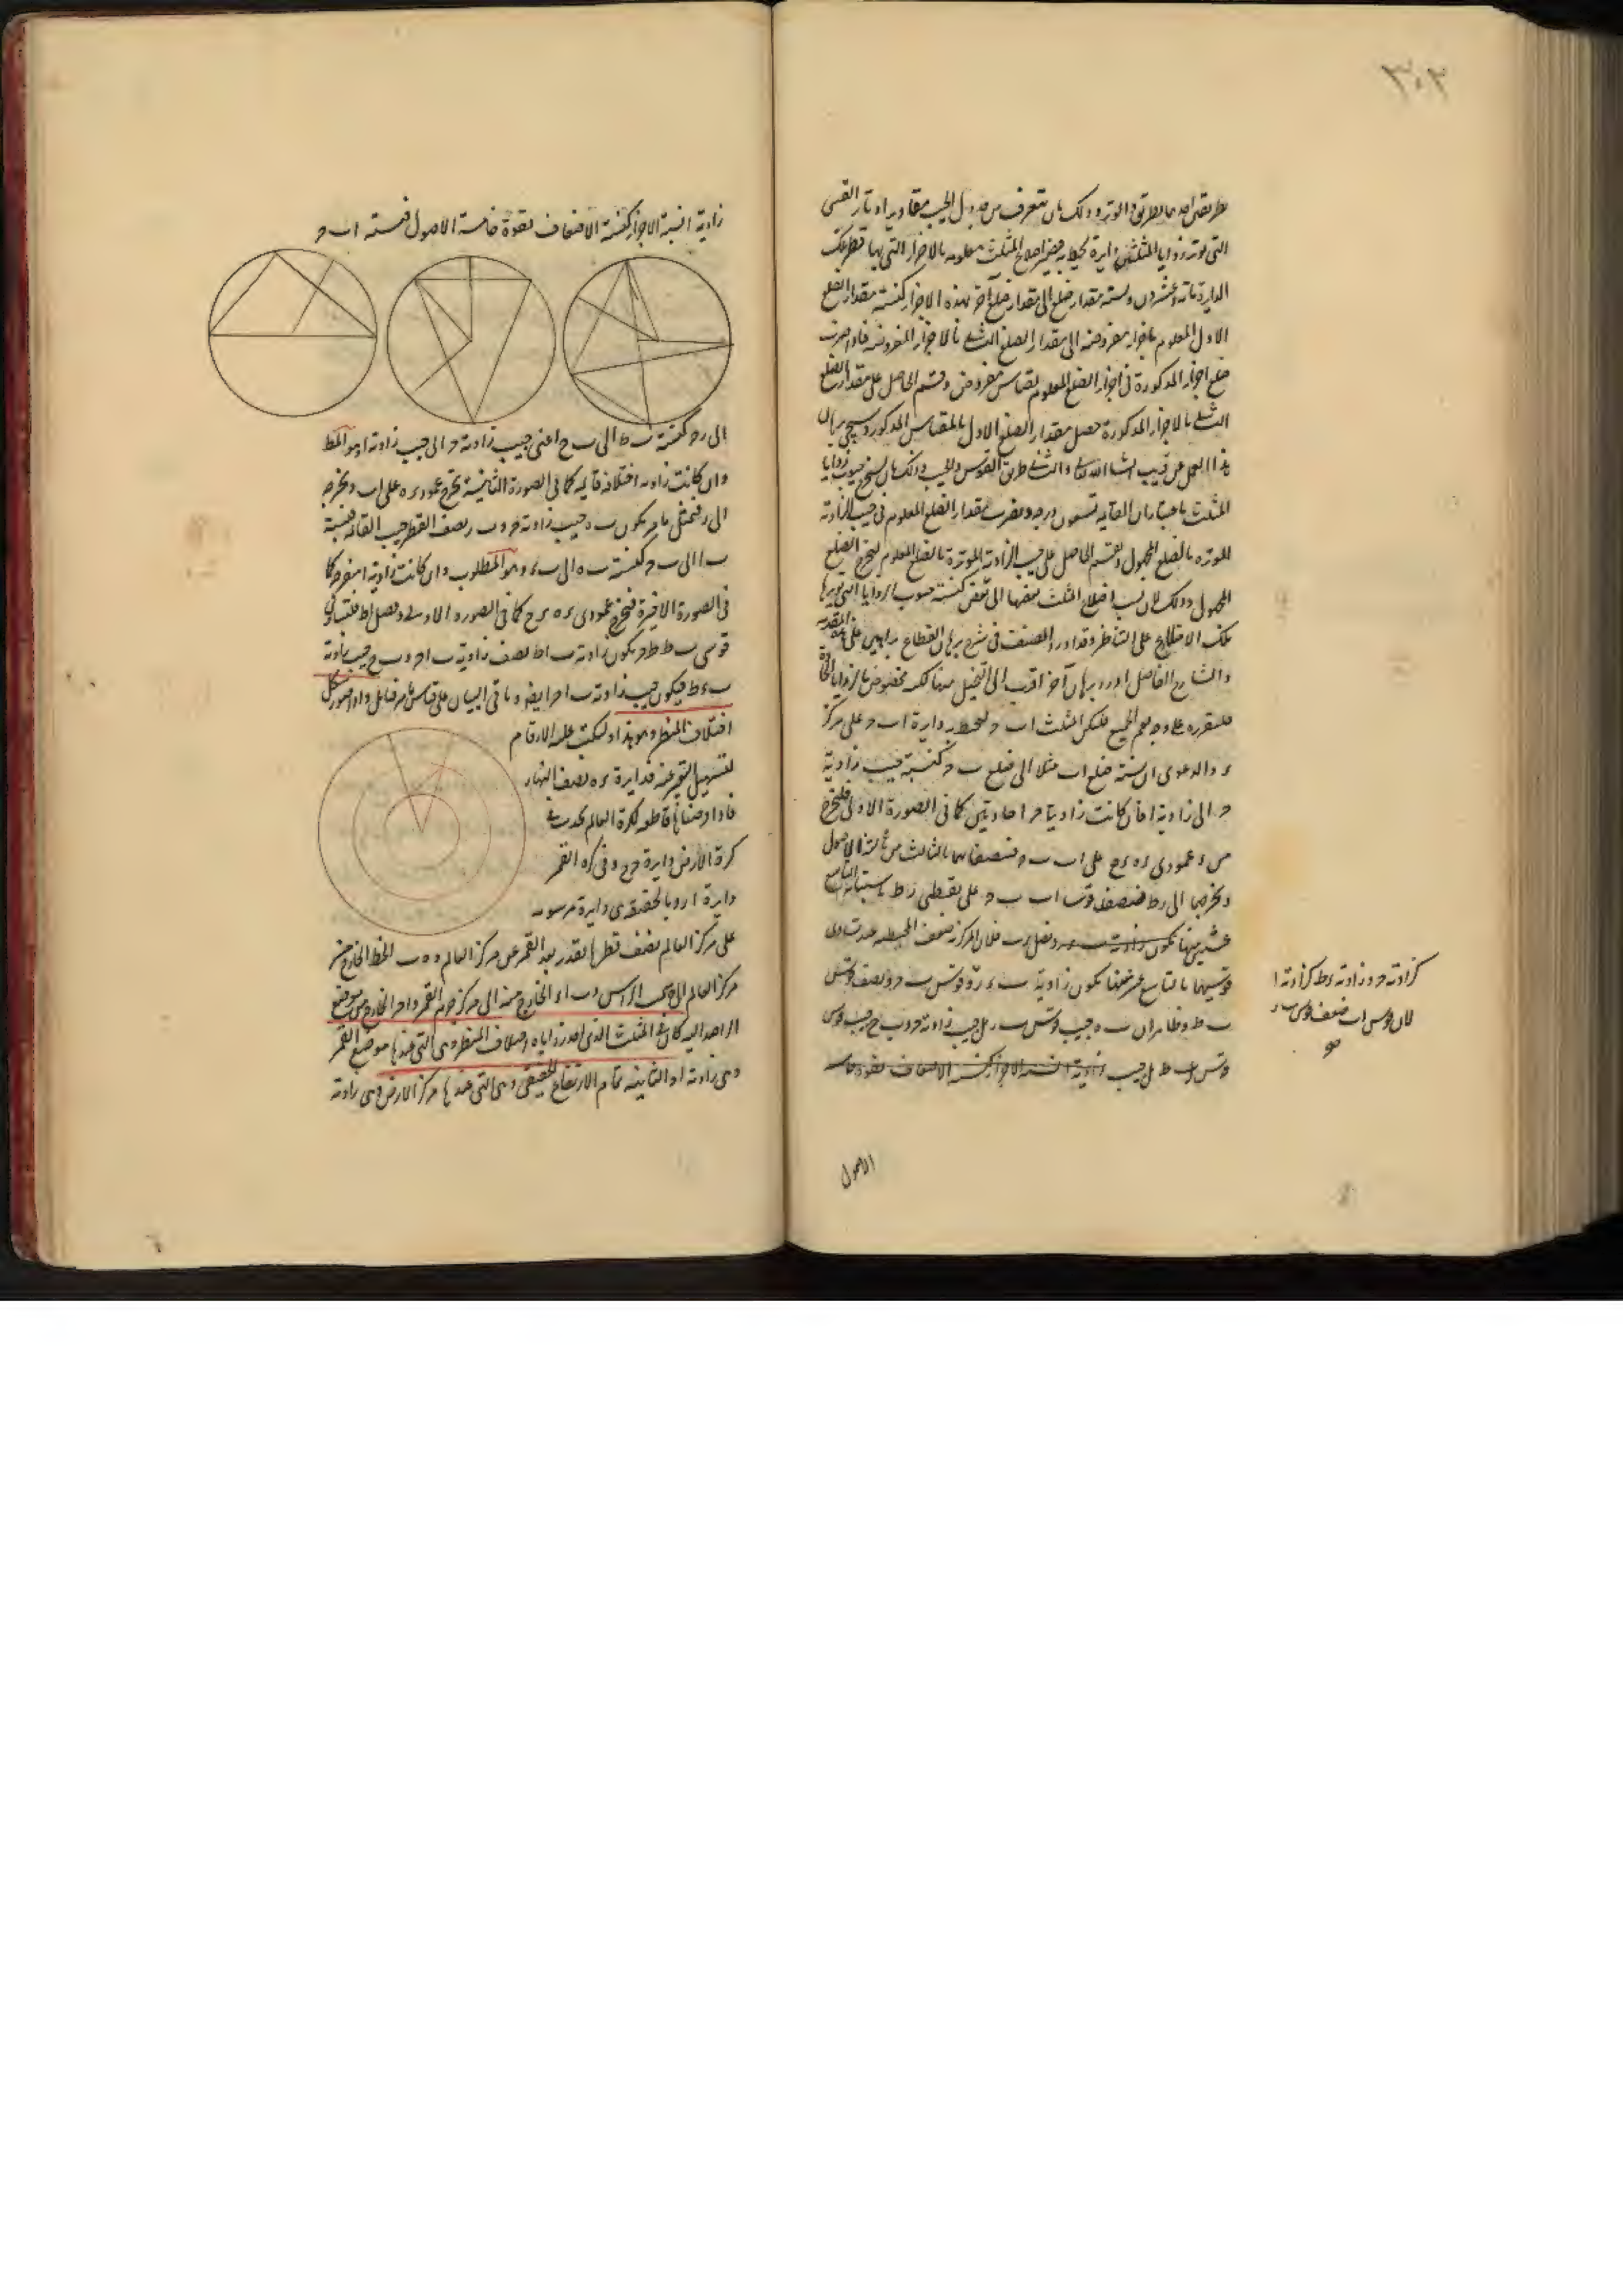 ٣٠٢
بطريقين احدهما بطريق الوتر وذلك بان نتعرف من جدول الجيب مقادير اوتار القسى
التى توتر زوايا المثلث من دايرة تحيط به فيصير اضلاع المثلث معلومه بالاجزاء التى بها قطر تلك
الدايرة مائة وعشرون ونسبة مقدار ضلع الى مقدار ضلع آخر بهذه الاجزاء كنسبة مقدار الضلع
الاول المعلوم باجزاء مفروضه الى مقدار الضلع الثانى بالاجزاء المفروضه فاذا ضرب
ضلع اجزاء المذكورة فى اجزاء الضلع المعلوم بمقياس مفروض وقسم الحاصل على مقدار الضلع
الثانى بالاجزاء المذكورة حصل مقدار الضلع الاول بالمقياس المذكور وسيجى بيان
هذا العمل عن قريب انشا الله تعالى والثانى طريق القوس والجيب وذلك بان نستخرج جيوب زوايا
المثلث باعتبار ان القايمه تسعون درجه ونضرب مقدار الضلع المعلوم فى جيب الزاوية
الموتره بالضلع المجهول ونقسم الحاصل على جيب الزاوية الموترة بالضلع المعلوم ليخرج الضلع
المجهول وذلك لان نسب اضلاع المثلث بعضها الى بعض كنسبة جيوب الزوايا التى توترها
تلك الاضلاع على التناظر وقد اورد المصنف فى شرح برهان القطاع براهين على هذه المقدمة
والشارح الفاضل اورد برهان آخر اقرب الى التخيل منها لكنه مخصوص بالزوايا الحادة
فلنقرره على وجه يعم الجميع فليكن المثلث ا ب حـ ولنحط به دايرة ا ب حـ على مركز
ء والدعوى ان نسبة ضلع ا ب مثلا الى ضلع ب حـ كنسبة جيب زاوية
حـ الى زاوية ا فان كانت زاويتا حـ ا حادتين كما فى الصورة الاولى فلنخرج
من ء عمودى ء ه ء ح على ا ب ب حـ فتنصفانهما بالثالث من ثالثة الاصول
ونخرجهما الى ر ط فتنصف قوسا ا ب ب حـ على نقطتى ر ط
قوسيهما بالتاسع عشر منها تكون زاوية ب ء ر و قوس ب حـ ونصف قوس
ب ط وظاهر ان ب ه جيب قوس ب ر بل جيب زاوية حـ و ب ح جيب قوس
قوس ب ط بل جيب زاوية ا نسبة الاجزاء كنسبة الاضعاف بقوة خامسة
الاصول
كزاوية حـ و زاوية ء ط كزاوية ا
لان قوس ا ب ضعف قوس ب ر
صح
زاوية ا نسبة الاجزاء كنسبة الاضعاف بقوة خامسة الاصول فنسبة ا ب حـ
الى ر حـ كنسبة ب ه الى ب ح اعنى جيب زاوية حـ الى جيب زاوية ا وهو المط
وان كانت زاوية ا قايمة كما فى الصورة الثانية نخرج عمود ء ه على ا ب ونخرجه
الى ر فبمثل ما مر يكون ب ه جيب زاوية حـ و ب ء نصف القطر جيب القايمة فنسبة
ب ا الى ب حـ كنسبة ب ه الى ب ء وهو المطلوب وان كانت زاوية ا منفرجة كما
فى الصورة الاخيرة فنخرج عمودى ء ه ء ح كما فى الصورة الاولى ونصل ا ط فلتساوى
قوسى ب ط ط حـ يكون زاوية ب ا ط نصف زاوية ب ا حـ و ب ح جيب زاوية
ب ء ط فيكون جيب زاوية ب ا حـ ايضا وباقى البيان على قياس ما مر فتامل واذا تصور شكل
اختلاف المنظر وهو هذا ولنكتب عليه الارقام
لتسهيل التعبير عنه فدايرة ء ه نصف النهار
فاذا فرضناها قاطعه لكرة العالم يحدث فى
كرة الارض دايرة ح ح وفى كره القمر
دايرة ا ر وبالحقيقه هى دايرة مرسومه
على مركز العالم نصف قطرها بقدر بعد القمر عن مركز العالم و ه ب الخط الخارج من
مركز العالم الى سمت الراس و ب ا ء الخارج منه الى مركز جرم القمر و ا حـ الخارج من موضع
الراصد اليه كان فى المثلث الذى احد زواياه اختلاف المنظر وهى التى عندها موضع القمر
وهى زاوية ا و الثانية تمام الارتفاع الحقيقى وهى التى عندها مركز الارض وهى زاوية